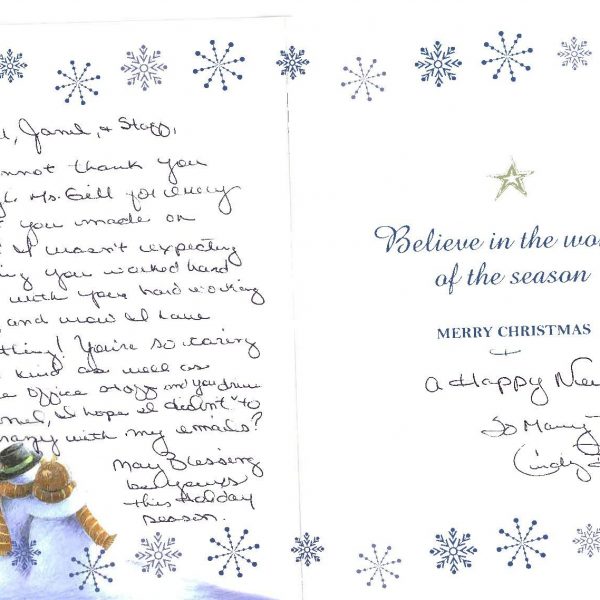 l, Janel, & Staff,
annot thank you
gh Ms. Gill for every
t you made on
I wasn't expecting
ing you worked hard
with your hard working
, and now I have
thing! You're so caring
kind as well as
e office staff and you drew
nel, I hope I didn't "to
many with my emails?
May Blessing
be yours
this Holiday
season.
Believe in the wo
of the season
MERRY CHRISTMAS
+
a Happy New
So Many T
Cindy